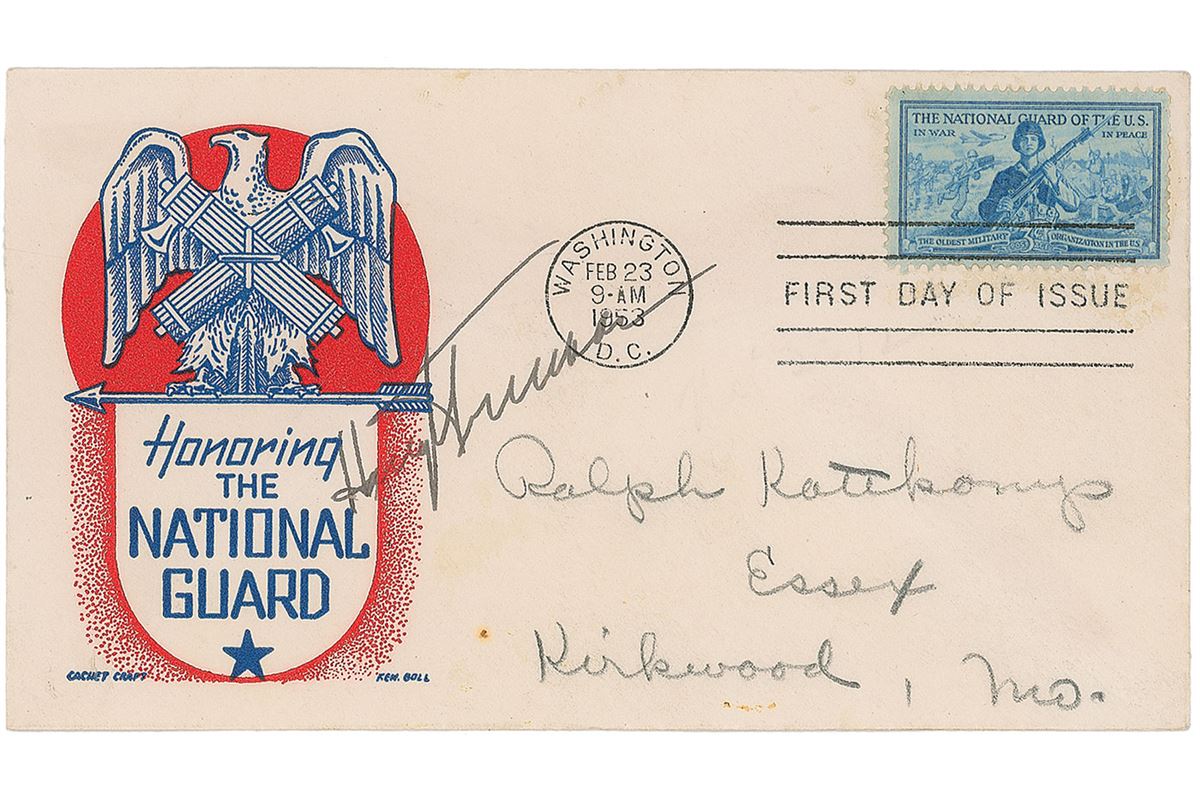 Honoring
THE
NATIONAL
GUARD
CACHET CRAFT
KEN. BOLL
Harry Truman
WASHINGTON
FEB 23
9-AM
1953
D.C.
THE NATIONAL GUARD OF THE U.S.
IN WAR
IN PEACE
THE OLDEST MILITARY
ORGANIZATION IN THE U.S.
FIRST DAY OF ISSUE
Ralph Kottkamp
Essex
Kirkwood, Mo.